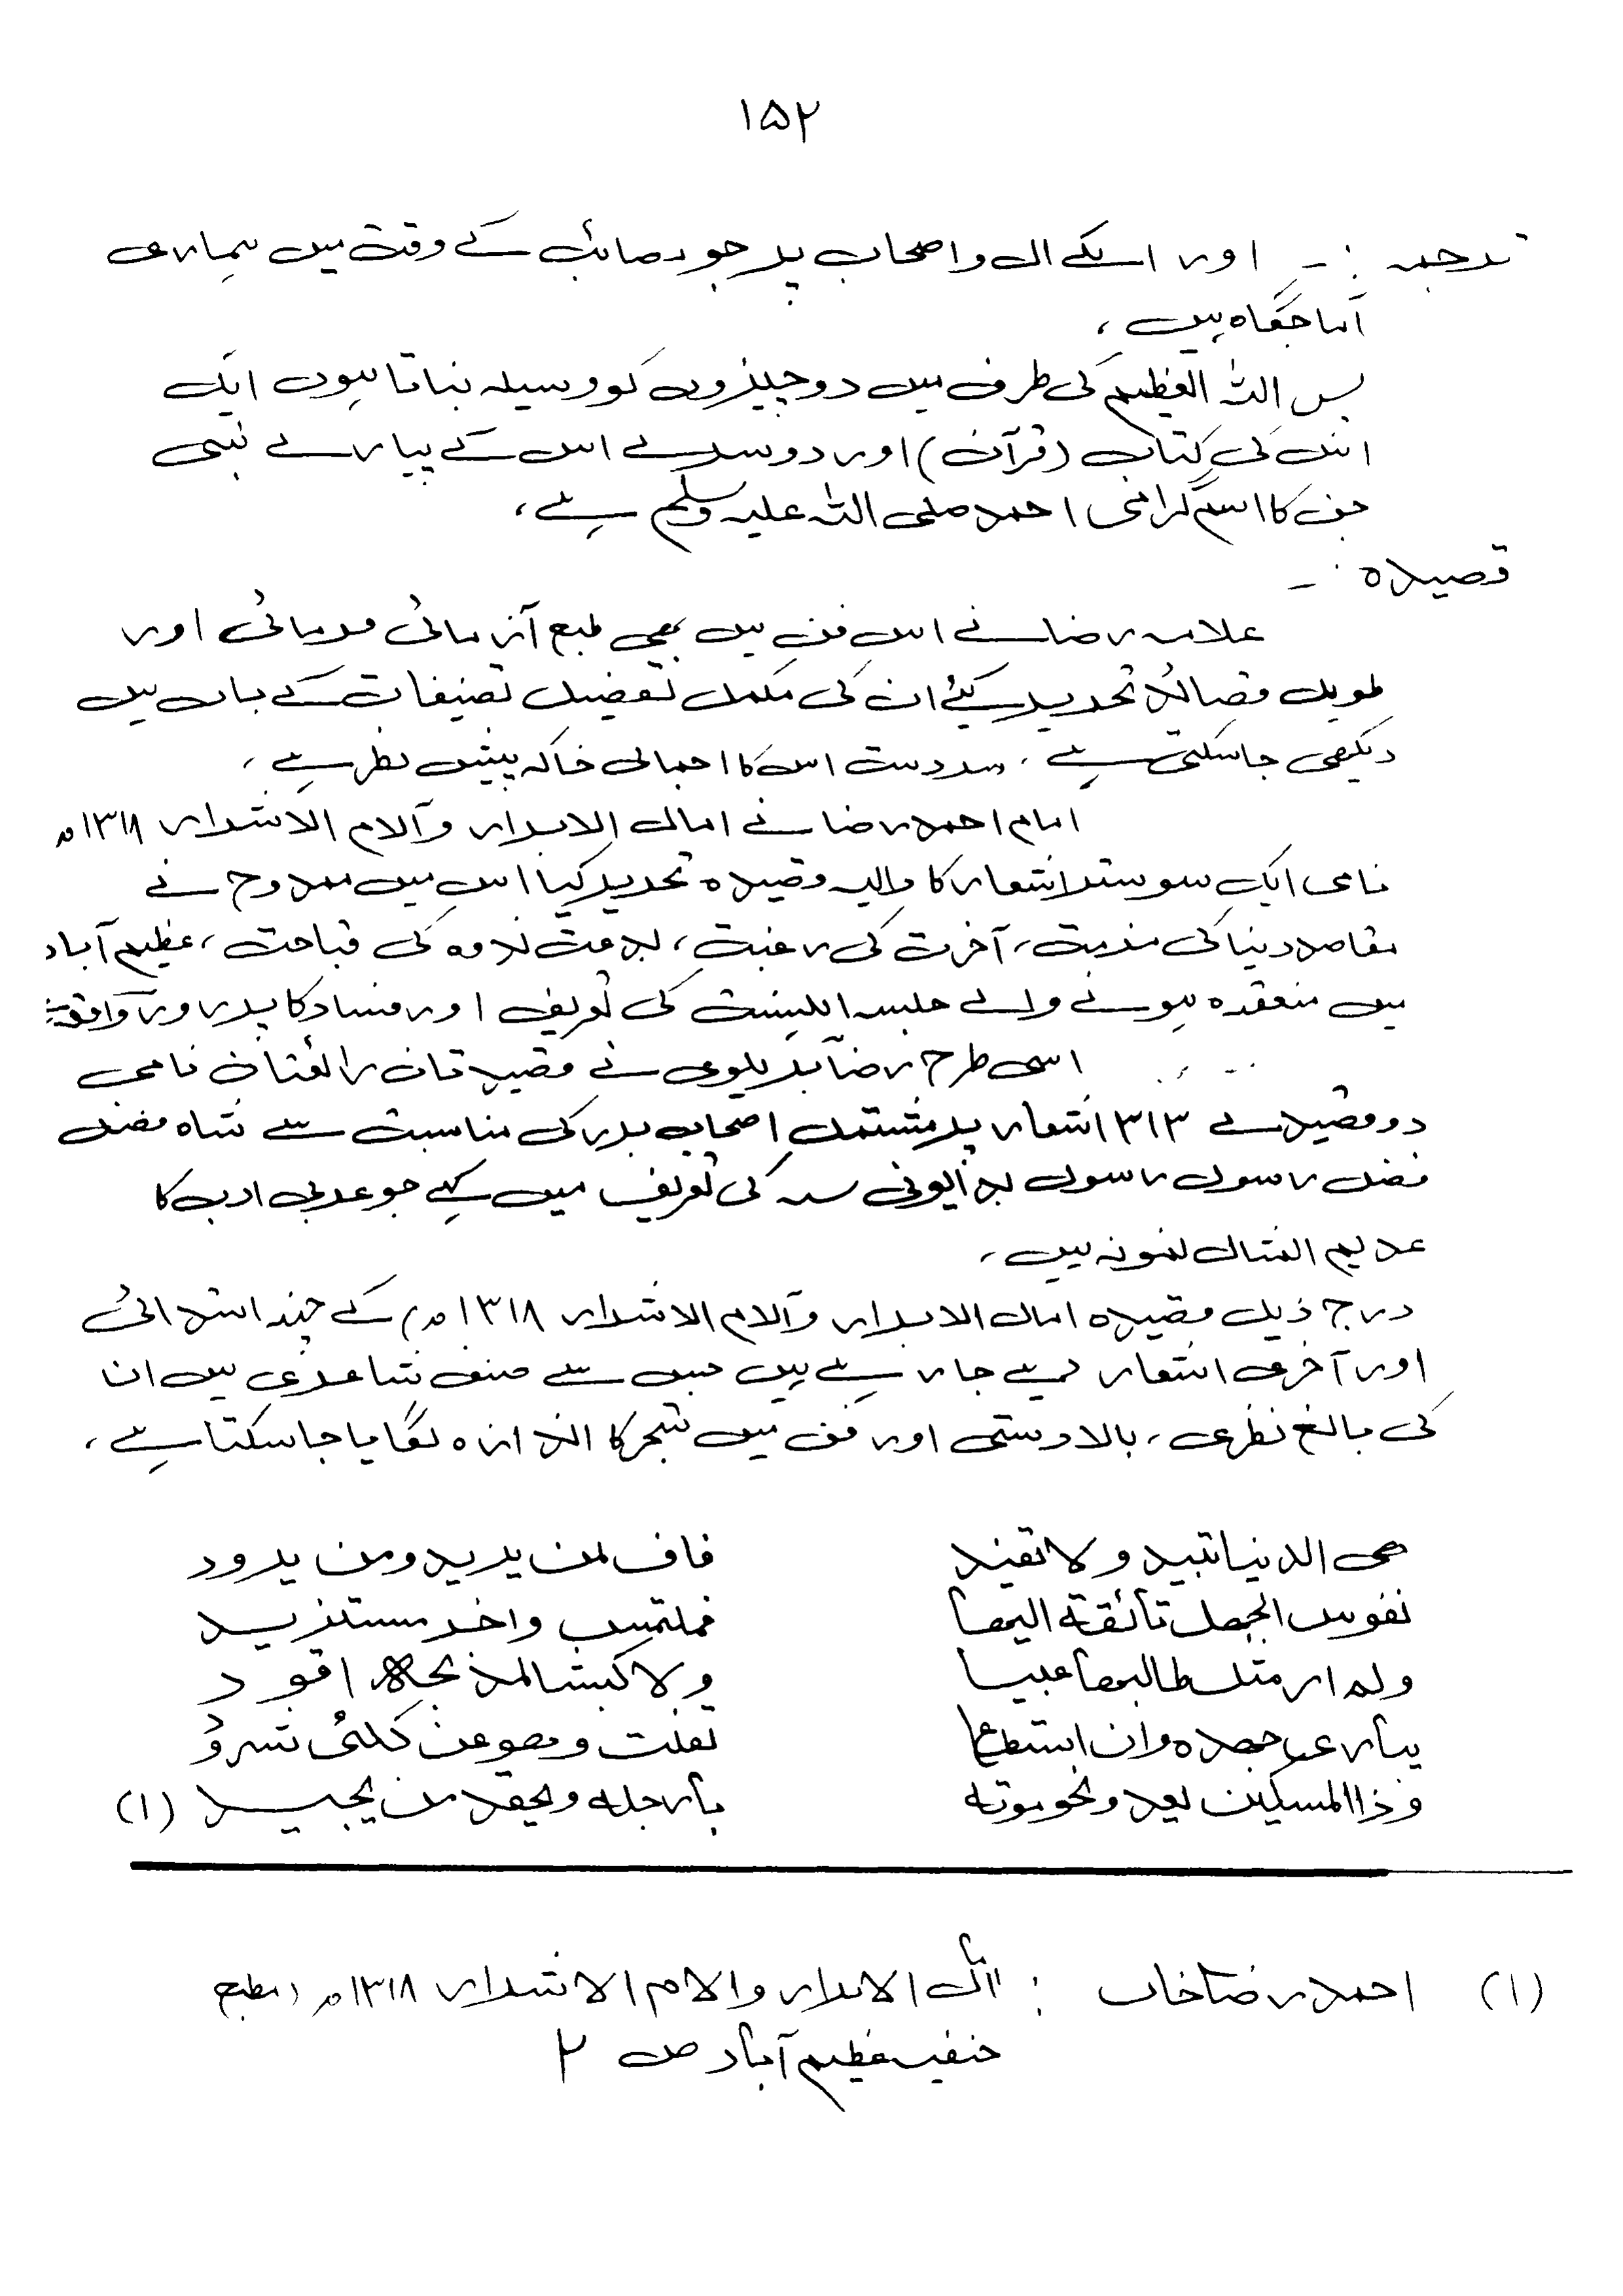 ۱۵۲
ترجمہ :۔ اور اسکے ال واصحاب پر جو مصائب کے وقت میں ہماری
آماجگاہ ہیں ،
پس اللہ العظیم کی طرف میں دو چیزوں کو وسیلہ بناتا ہوں ایک
اس کی کتاب (قرآن) اور دوسرے اس کے پیارے نبی
جن کا اسم گرامی احمد صلی اللہ علیہ وسلم ہے ،
قصیدہ :۔
علامہ رضا نے اس فن میں بھی طبع آزمائی فرمائی اور
طویل قصائد تحریر کیئے ان کی مکمل تفصیل تصنیفات کے باب میں
دیکھی جاسکتی ہے ، سردست اس کا اجمالی خاکہ پیش نظر ہے ،
امام احمد رضا نے امال الابرار وآلام الاشرار ۱۳۱۸ھ
نامی ایک سو ستر اشعار کا دالیہ قصیدہ تحریر کیا اس میں ممدوح نے
مقاصد دنیا کی مذمت ، آخرت کی رغبت ، بدعت ندوہ کی قباحت ، عظیم آباد
میں منعقدہ ہونے والے جلسہ اہلسنت کی تعریف اور فساد کا پدر
اسی طرح رضا بریلوی نے قصیدتان رائعتان نامی
دو قصیدے ۳۱۳ اشعار پر مشتمل اصحاب بدر کی مناسبت سے شاہ فضل
فضل رسول رسول بدایونی سہ کی تعریف میں کہے جو عربی ادب کا
عدیم المثال نمونہ ہیں ،
درج ذیل قصیدہ امال الابرار وآلام الاشرار ۱۳۱۸ھ) کے چند ابتدائی
اور آخری اشعار دیے جارہے ہیں جس سے صنف شاعری میں ان
کی بالغ نظری ، بالادستی اور فن میں تبحر کا اندازہ لگایا جاسکتا ہے ،
ھی الدنیا تبید ولا تفید فاف لمن یرید ومن یرود
نفوس الجھل تائقۃ الیھا فملتمس واخر مستزید
ولم ار مثل طالبھا غبیا ولا کبشا لمذبحہ اقود
یسارع جھدہ وان استطاعا تفلت وھو عن کلئی شرود
وذا المسکین یعدو نحو موتہ بارجلہ ویحقد من یحید (۱)
(۱) احمد رضا خاں : امال الابرار والام الاشرار ۱۳۱۸ھ (مطبع
حنفیہ عظیم آباد ص ۲